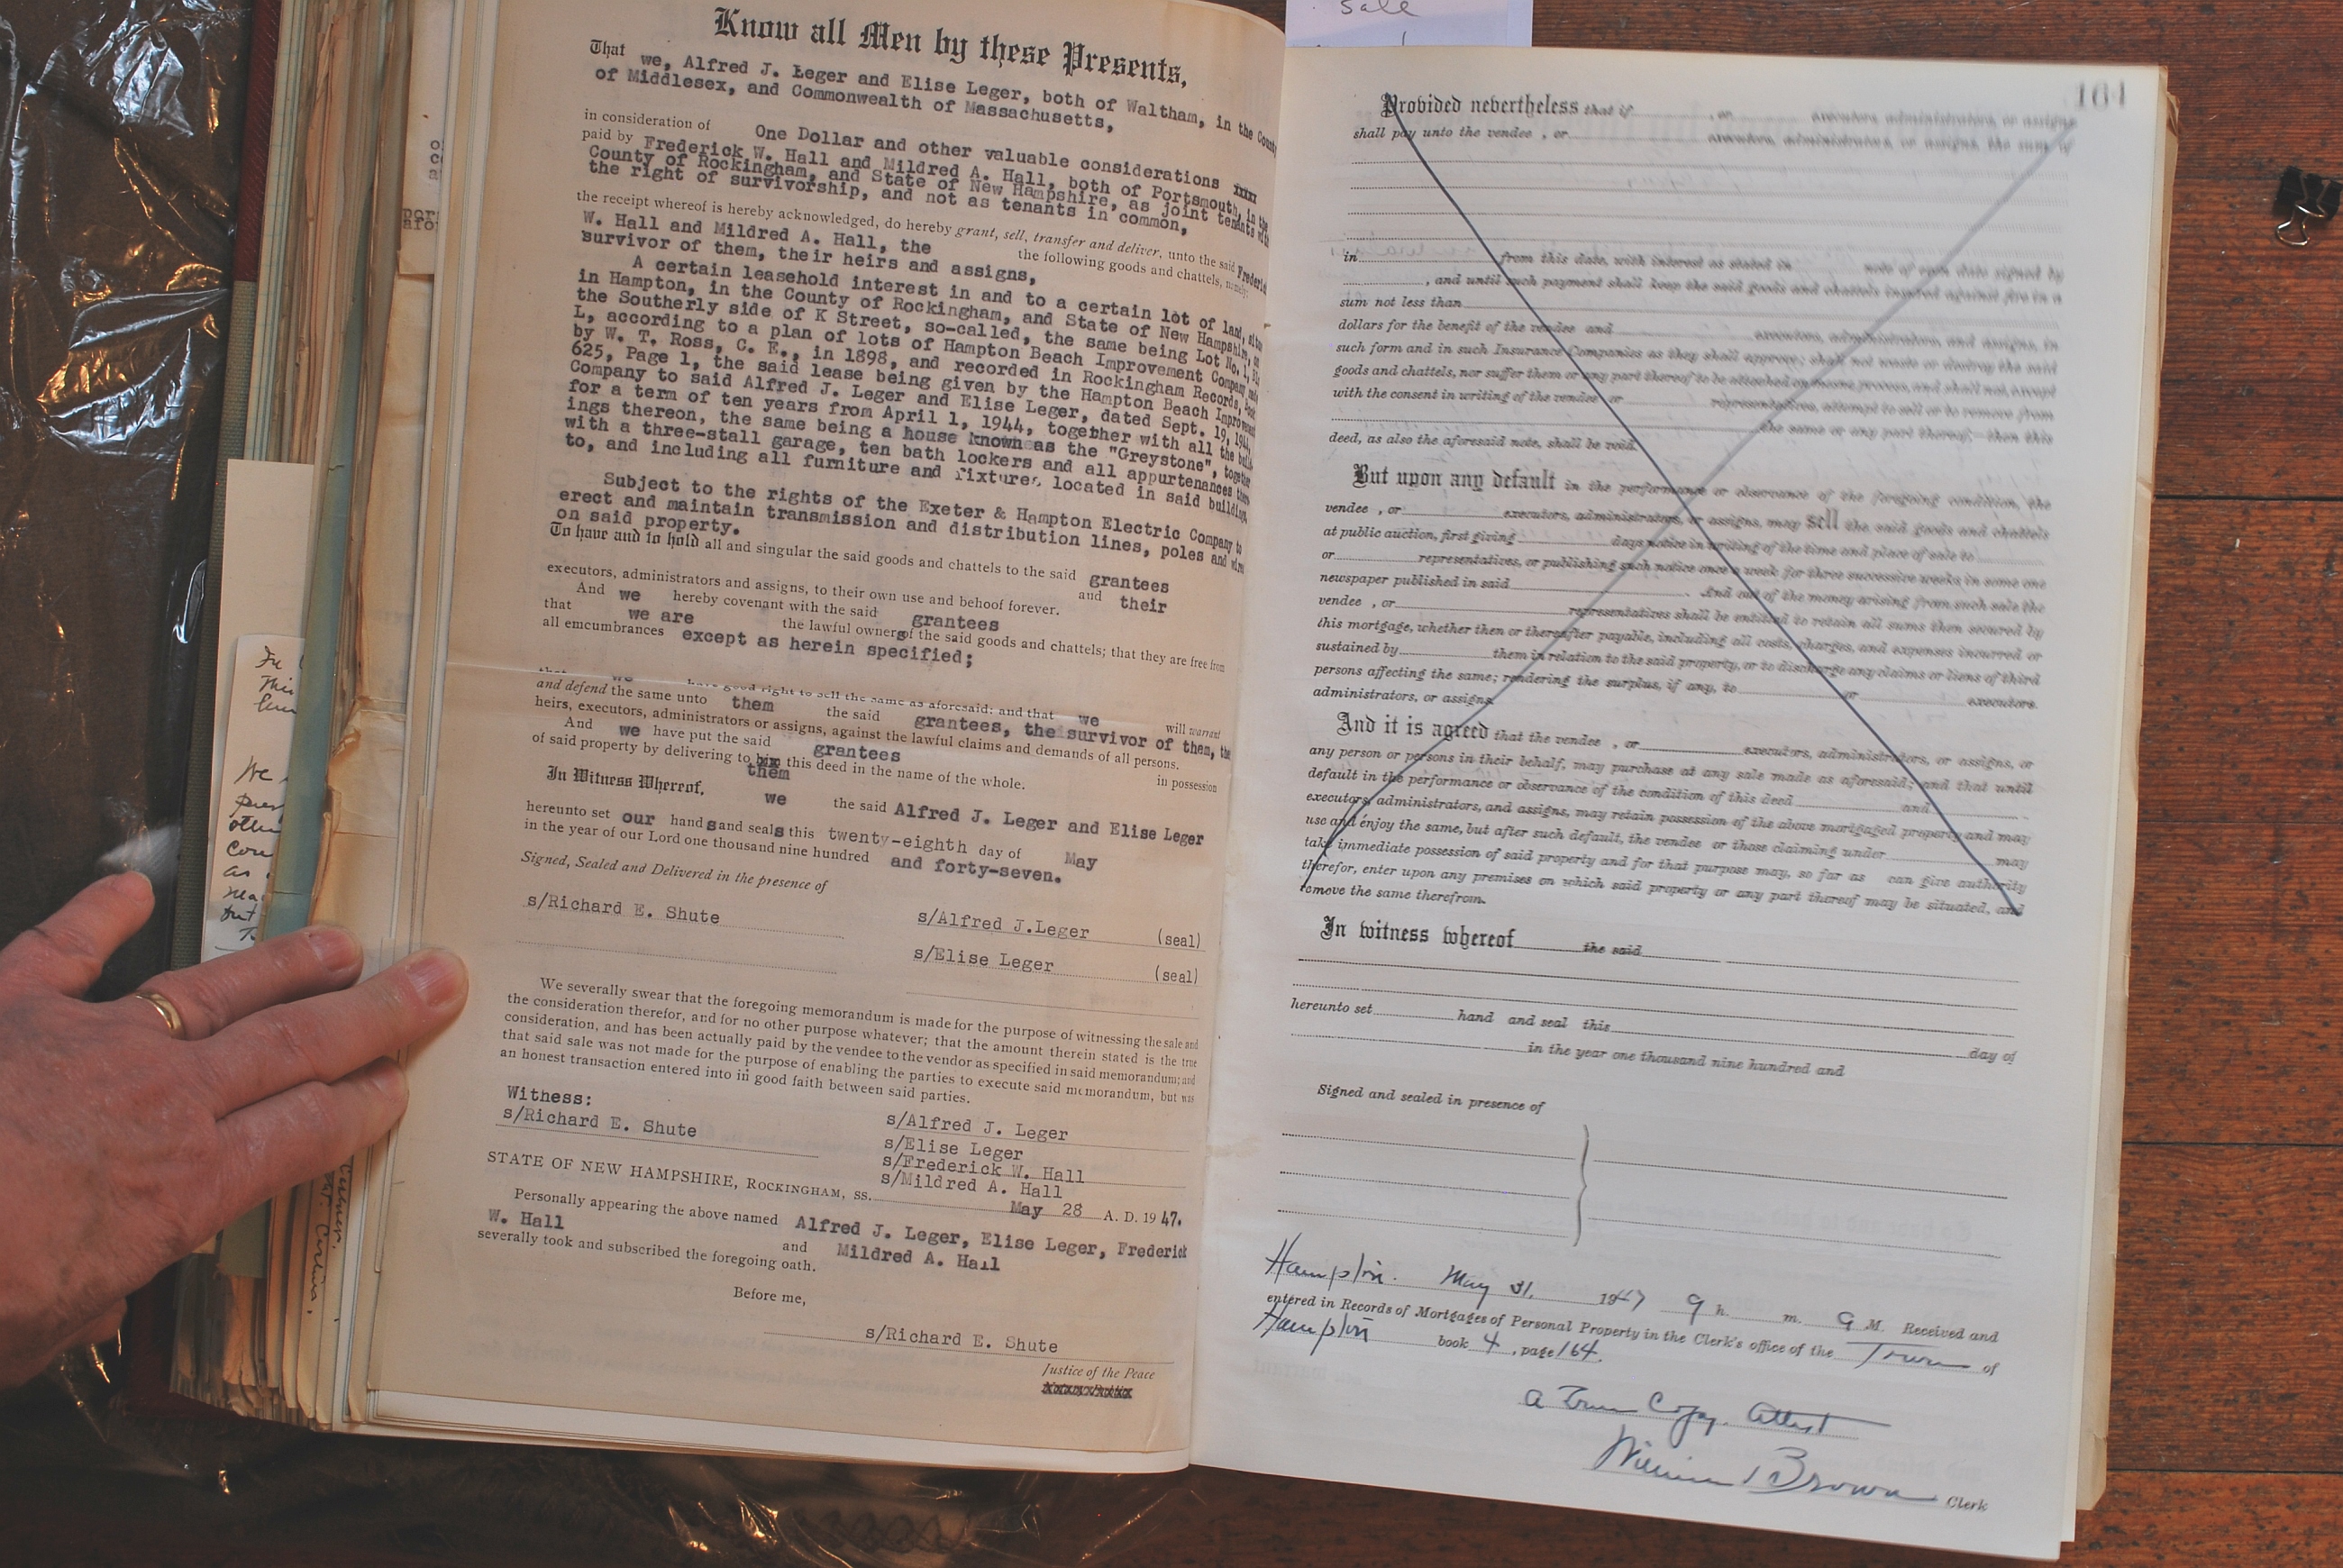 sale
Know all Men by these Presents,
That we, Alfred J. Leger and Elise Leger, both of Waltham, in the County
of Middlesex, and Commonwealth of Massachusetts,
in consideration of One Dollar and other valuable considerations xxxx
paid by Frederick W. Hall and Mildred A. Hall, both of Portsmouth, in the
County of Rockingham, and State of New Hampshire, as joint tenants with
the right of survivorship, and not as tenants in common,
the receipt whereof is hereby acknowledged, do hereby grant, sell, transfer and deliver, unto the said Frederick
W. Hall and Mildred A. Hall, the the following goods and chattels, namely:
survivor of them, their heirs and assigns,
A certain leasehold interest in and to a certain lot of land, situ
in Hampton, in the County of Rockingham, and State of New Hampshire, on
the Southerly side of K Street, so-called, the same being Lot No. 1, Blk
L, according to a plan of lots of Hampton Beach Improvement Company, made
by W. T. Ross, C. E., in 1898, and recorded in Rockingham Records, Book
625, Page 1, the said lease being given by the Hampton Beach Improvement
Company to said Alfred J. Leger and Elise Leger, dated Sept. 19, 1944,
for a term of ten years from April 1, 1944, together with all the build-
ings thereon, the same being a house known as the "Greystone", together
with a three-stall garage, ten bath lockers and all appurtenances there
to, and including all furniture and fixtures located in said building.
Subject to the rights of the Exeter & Hampton Electric Company to
erect and maintain transmission and distribution lines, poles and wires
on said property.
To have and to hold all and singular the said goods and chattels to the said grantees
and their
executors, administrators and assigns, to their own use and behoof forever.
And we hereby covenant with the said grantees
that we are the lawful owners of the said goods and chattels; that they are free from
all emcumbrances except as herein specified;
that we have good right to sell the same as aforesaid: and that we will warrant
and defend the same unto them the said grantees, the survivor of them, the
heirs, executors, administrators or assigns, against the lawful claims and demands of all persons.
And we have put the said grantees in possession
of said property by delivering to him this deed in the name of the whole.
them
In Witness Whereof, we the said Alfred J. Leger and Elise Leger
hereunto set our hands and seals this twenty-eighth day of May
in the year of our Lord one thousand nine hundred and forty-seven.
Signed, Sealed and Delivered in the presence of
s/Richard E. Shute s/Alfred J.Leger (seal)
s/Elise Leger (seal)
We severally swear that the foregoing memorandum is made for the purpose of witnessing the sale and
the consideration therefor, and for no other purpose whatever; that the amount therein stated is the true
consideration, and has been actually paid by the vendee to the vendor as specified in said memorandum; and
that said sale was not made for the purpose of enabling the parties to execute said memorandum, but was
an honest transaction entered into in good faith between said parties.
Witness:
s/Richard E. Shute s/Alfred J. Leger
s/Elise Leger
s/Frederick W. Hall
s/Mildred A. Hall
STATE OF NEW HAMPSHIRE, ROCKINGHAM, SS. May 28 A. D. 1947.
Personally appearing the above named Alfred J. Leger, Elise Leger, Frederick
W. Hall and Mildred A. Hall
severally took and subscribed the foregoing oath.
Before me,
s/Richard E. Shute
Justice of the Peace
164
Provided nevertheless that if , or executors administrators, or assigns
shall pay unto the vendee , or executors, administrators, or assigns, the sum of
in from this date, with interest as stated in note of even date signed by
, and until such payment shall keep the said goods and chattels insured against fire in a
sum not less than
dollars for the benefit of the vendee and executors, administrators, and assigns, in
such form and in such Insurance Companies as they shall approve; shall not waste or destroy the said
goods and chattels, nor suffer them or any part thereof to be attached on mesne process, and shall not, except
with the consent in writing of the vendee or representatives, attempt to sell or to remove from
the same or any part thereof,—then this
deed, as also the aforesaid note, shall be void.
But upon any default in the performance or observance of the foregoing condition, the
vendee , or executors, administrators, or assigns, may sell the said goods and chattels
at public auction, first giving days notice in writing of the time and place of sale to
or representatives, or publishing such notice once a week for three successive weeks in some one
newspaper published in said . And out of the money arising from such sale the
vendee , or representatives shall be entitled to retain all sums then secured by
this mortgage, whether then or thereafter payable, including all costs, charges, and expenses incurred or
sustained by them in relation to the said property, or to discharge any claims or liens of third
persons affecting the same; rendering the surplus, if any, to or executors.
administrators, or assigns.
And it is agreed that the vendee , or executors, administrators, or assigns, or
any person or persons in their behalf, may purchase at any sale made as aforesaid; and that until
default in the performance or observance of the condition of this deed and
executors, administrators, and assigns, may retain possession of the above mortgaged property and may
use and enjoy the same, but after such default, the vendee or those claiming under may
take immediate possession of said property and for that purpose may, so far as can give authority
therefor, enter upon any premises on which said property or any part thereof may be situated, and
remove the same therefrom.
In witness whereof the said
hereunto set hand and seal this day of
in the year one thousand nine hundred and
Signed and sealed in presence of
Hampton. May 31, 1947 9 h. m. a M. Received and
entered in Records of Mortgages of Personal Property in the Clerk's office of the Town of
Hampton book 4, page 164.
A True Copy. Attest
William Brown Clerk